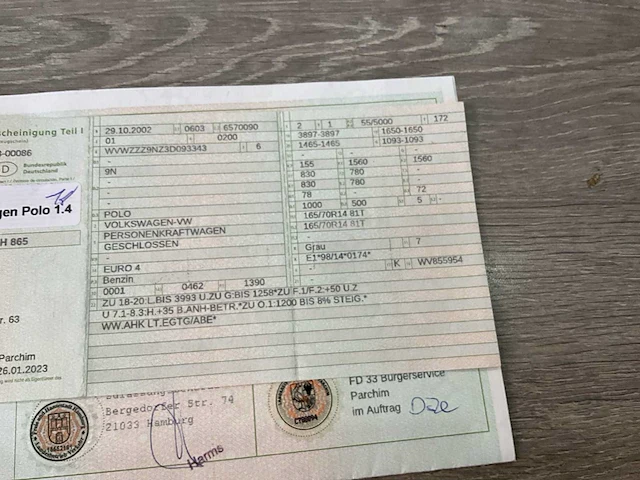 cheinigung Teil I
-00086
D
Bundesrepublik
Deutschland
gen Polo 1.4
H 865
r. 63
Parchim
26.01.2023
29.10.2002 0603 6570090
01 0200
WVWZZZ9NZ3D093343 6
-
9N
-
-
POLO
VOLKSWAGEN-VW
PERSONENKRAFTWAGEN
GESCHLOSSEN
-
EURO 4
Benzin
0001 0462 1390
2 1 55/5000 172
3897-3897 1650-1650
1465-1465 1093-1093
- -
155 1560 1560
830 780 -
830 780 -
78 - 72
1000 500 5 -
165/70R14 81T
165/70R14 81T
-
Grau 7
E1*98/14*0174*
- K WV855954
-
ZU 18-20:L.BIS 3993 U.ZU G:BIS 1258*ZU F.1/F.2:+50 U.Z
U 7.1-8.3:H.+35 B.ANH-BETR.*ZU O.1:1200 BIS 8% STEIG.*
WW.AHK LT.EGTG/ABE*
Bergedorfer Str. 74
21033 Hamburg
Harms
FD 33 Bürgerservice
Parchim
im Auftrag